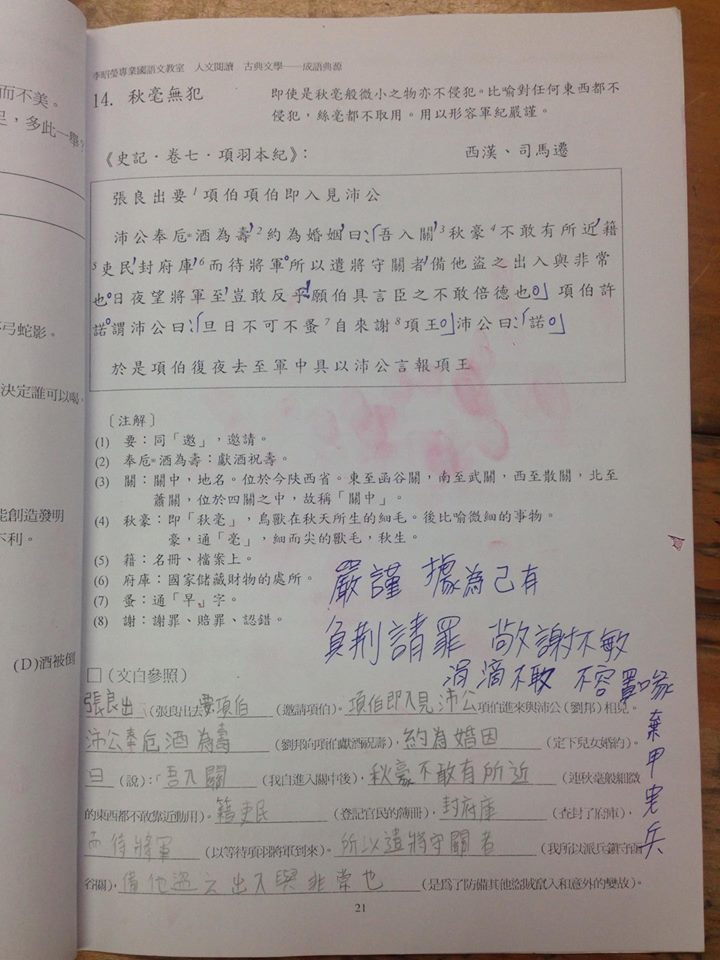 而不美。
足,多此一舉
弓蛇影。
決定誰可以喝。
能創造發明
不利。
(D)酒被倒
李昭瑩專業國語文教室 人文閱讀 古典文學——成語典源
14. 秋毫無犯 即使是秋毫般微小之物亦不侵犯。比喻對任何東西都不
侵犯,絲毫都不取用。用以形容軍紀嚴謹。
《史記‧卷七‧項羽本紀》: 西漢、司馬遷
張良出要1項伯項伯即入見沛公
沛公奉卮酒為壽,2約為婚姻,曰:「吾入關,3秋豪4不敢有所近,籍
5吏民,封府庫,6而待將軍。所以遣將守關者,備他盜之出入與非常
也。日夜望將軍至,豈敢反乎!願伯具言臣之不敢倍德也。」項伯許
諾。謂沛公曰:「旦日不可不蚤7自來謝8項王。」沛公曰:「諾。」
於是項伯復夜去至軍中具以沛公言報項王
〔注解〕
(1) 要:同「邀」,邀請。
(2) 奉卮酒為壽:獻酒祝壽。
(3) 關:關中,地名。位於今陝西省。東至函谷關,南至武關,西至散關,北至
蕭關,位於四關之中,故稱「關中」。
(4) 秋豪:即「秋毫」,鳥獸在秋天所生的細毛。後比喻微細的事物。
豪,通「毫」,細而尖的獸毛,秋生。
(5) 籍:名冊、檔案上。
(6) 府庫:國家儲藏財物的處所。
(7) 蚤:通「早」字。
(8) 謝:謝罪、賠罪、認錯。
嚴謹 據為己有
負荊請罪 敬謝不敏
涓滴不取 不容置喙
棄甲曳兵
□(文白參照)
張良出(張良出去)要項伯(邀請項伯)。項伯即入見沛公項伯進來與沛公(劉邦)相見。
沛公奉卮酒為壽(劉邦向項伯獻酒祝壽),約為婚因(定下兒女婚約)。
曰(說):「吾入關(我自進入關中後),秋豪不敢有所近(連秋毫般細微
的東西都不敢靠近動用)。籍吏民(登記官民的簿冊),封府庫(查封了府庫),
而待將軍(以等待項羽將軍到來)。所以遣將守關者(我所以派兵鎮守函
谷關),備他盜之出入與非常也(是為了防備其他盜賊竄入和意外的變故)。
21